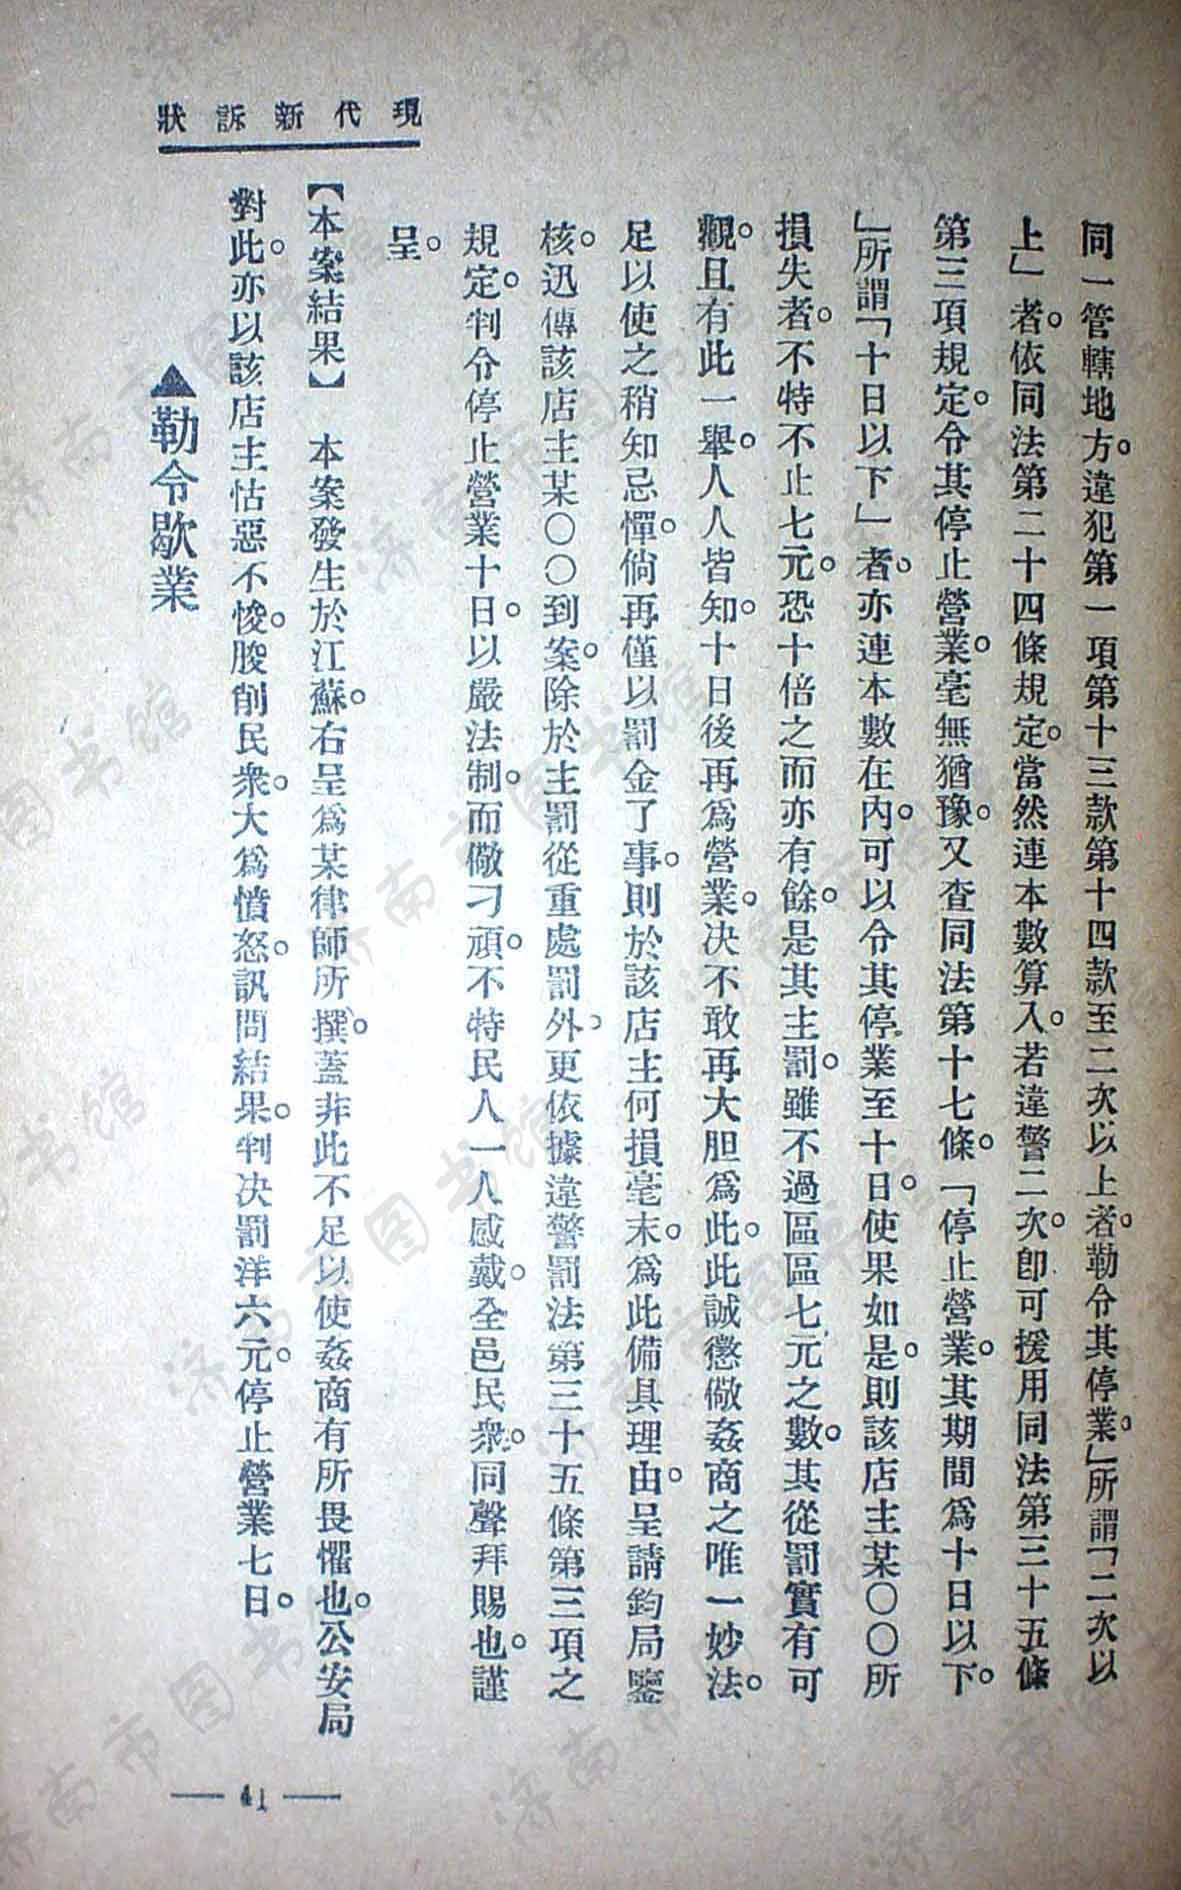 現代新訴狀
同一管轄地方。違犯第一項第十三款第十四款至二次以上者。勒令其停業。」所謂「二次以
上」者。依同法第二十四條規定。當然連本數算入。若違警二次。卽可援用同法第三十五條
第三項規定。令其停止營業。毫無猶豫。又查同法第十七條。「停止營業。其期間爲十日以下。
」所謂「十日以下」者。亦連本數在內。可以令其停業至十日。使果如是。則該店主某〇〇所
損失者。不特不止七元。恐十倍之而亦有餘。是其主罰。雖不過區區七元之數。其從罰實有可
觀。且有此一舉。人人皆知。十日後再爲營業。决不敢再大胆爲此。此誠懲儆姦商之唯一妙法。
足以使之稍知忌憚。倘再僅以罰金了事。則於該店主何損毫末。爲此備具理由。呈請鈞局鑒
核。迅傳該店主某〇〇到案。除於主罰從重處罰外。更依據違警罰法第三十五條第三項之
規定。判令停止營業十日。以嚴法制。而儆刁頑。不特民人一人感戴。全邑民衆。同聲拜賜也。謹
呈。
【本案結果】 本案發生於江蘇。右呈爲某律師所撰。蓋非此不足以使姦商有所畏懼也。公安局
對此。亦以該店主怙惡不悛。朘削民衆。大爲憤怒。訊問結果。判决罰洋六元。停止營業七日。
▲勒令歇業
— 41 —
济南市图书馆